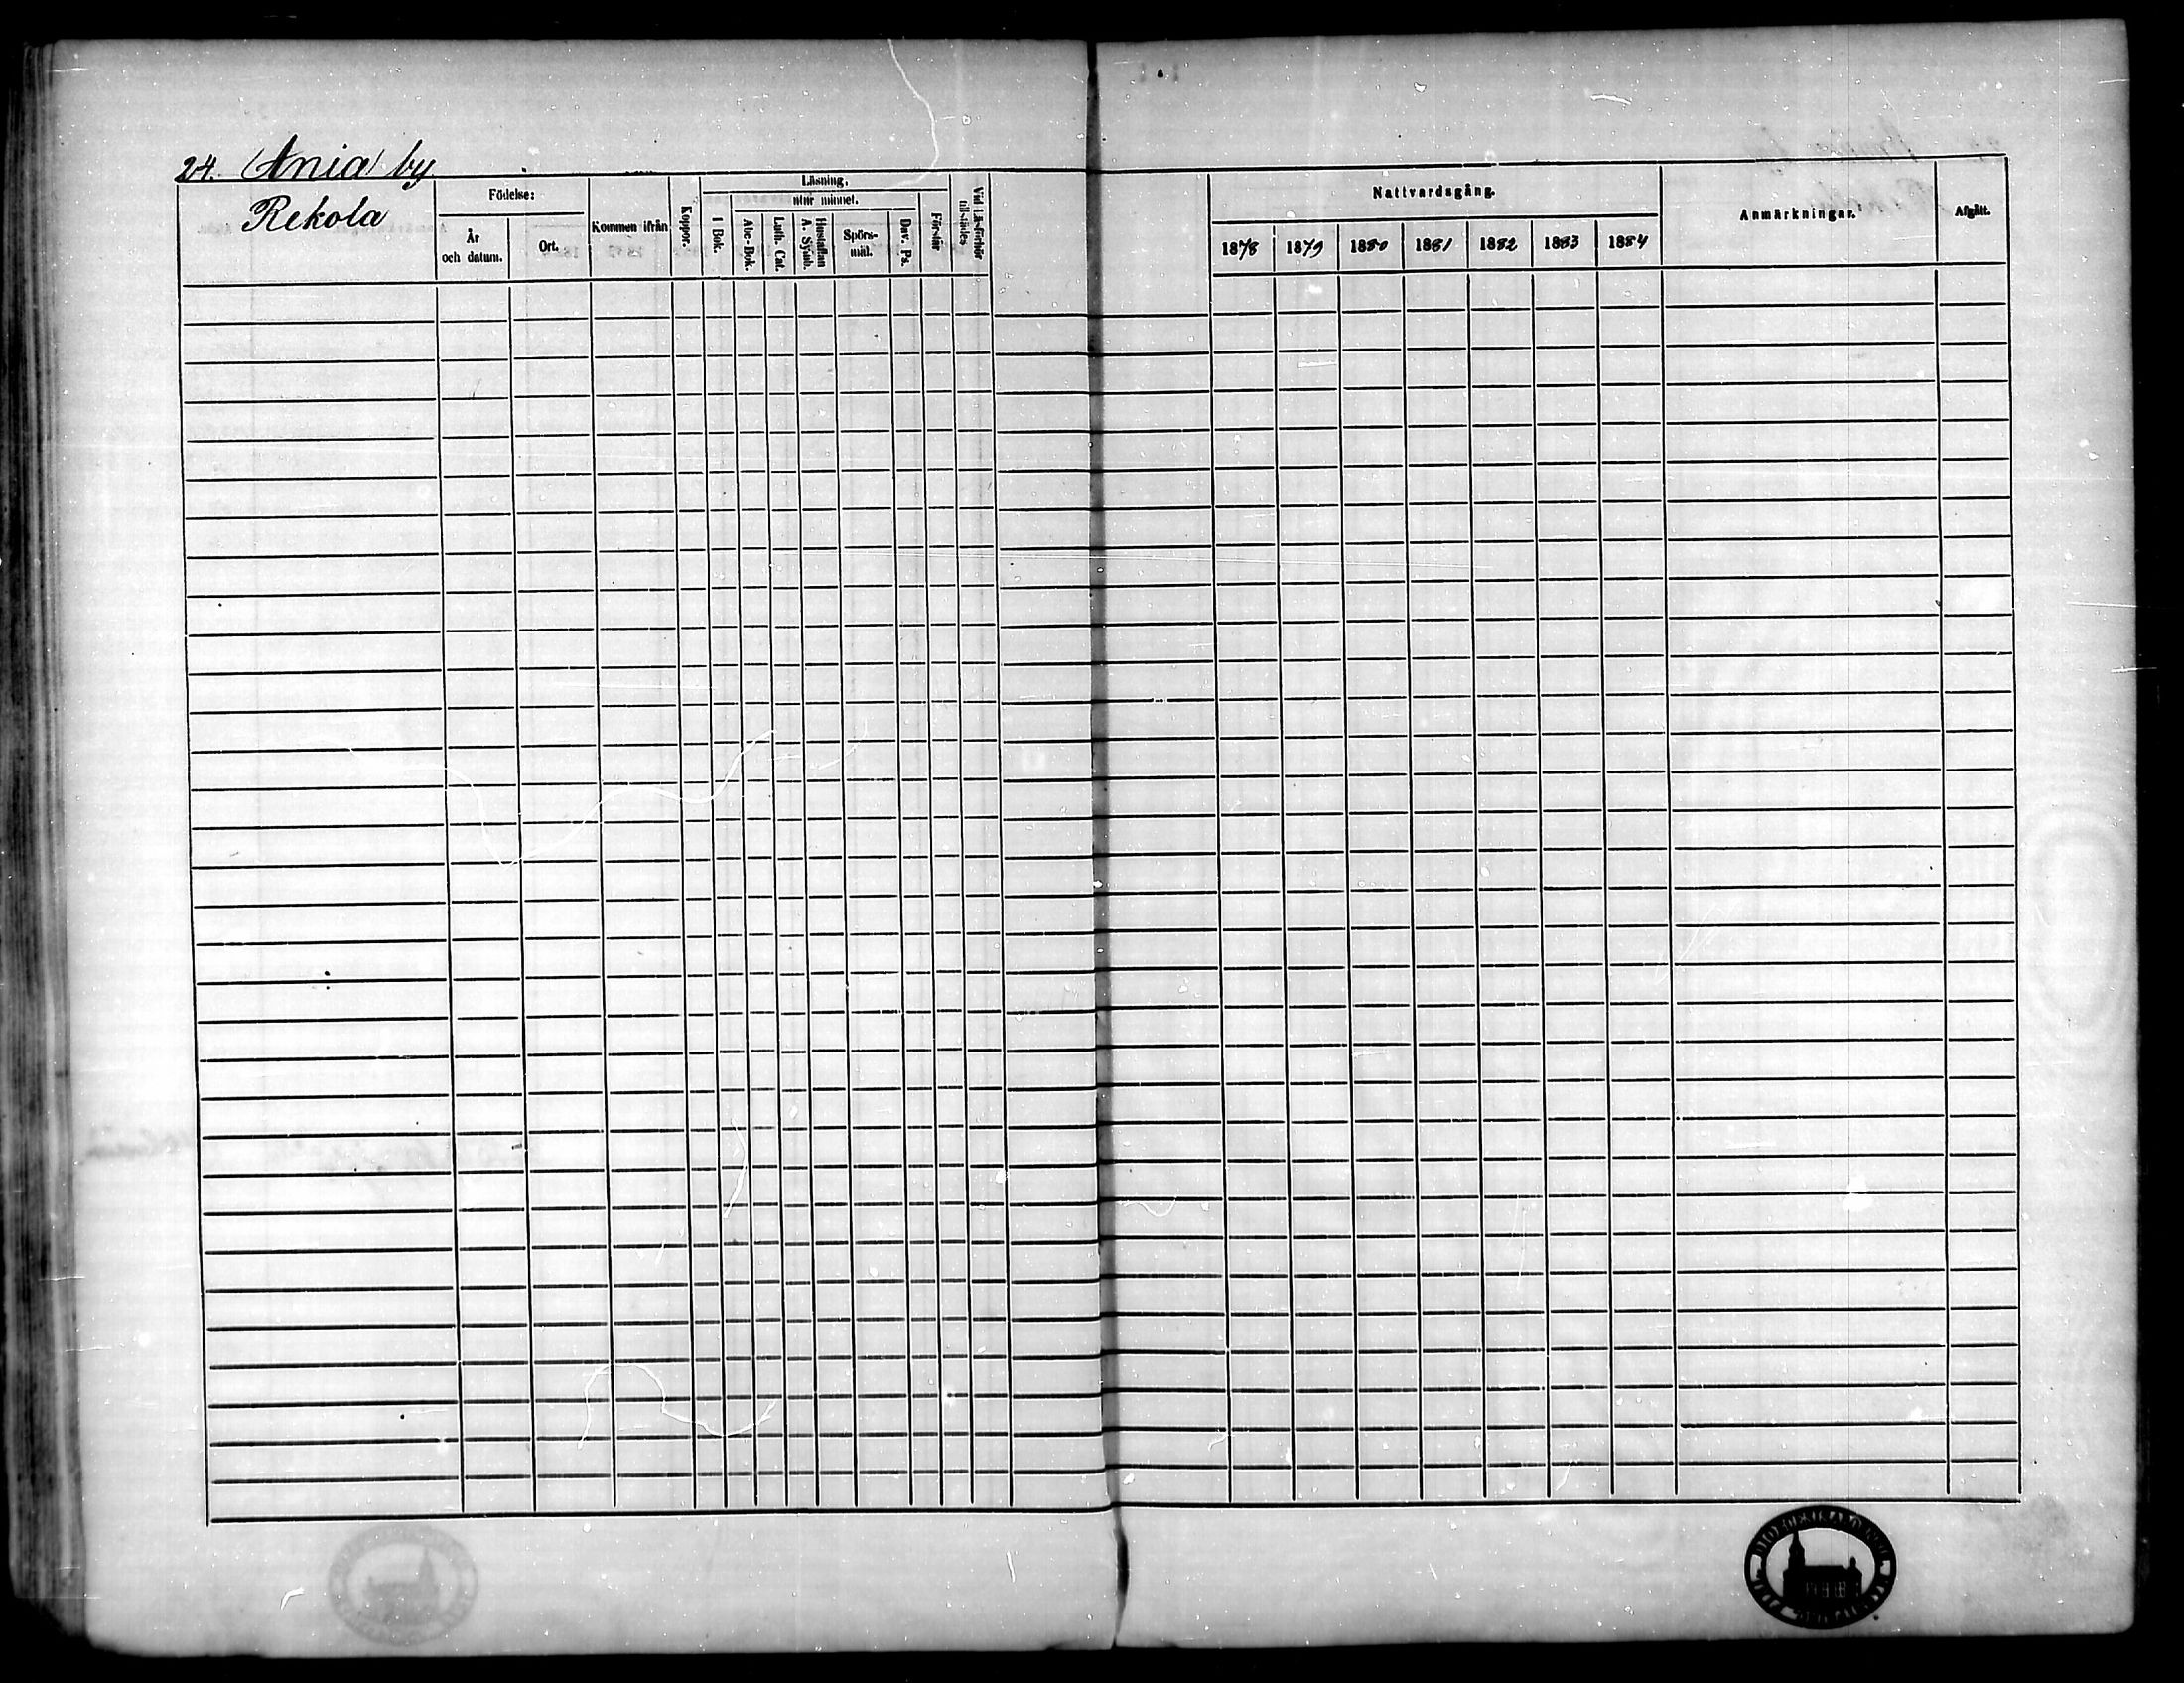 24. Ania by
Rekola
Födelse:
År
och datum.
Ort.
Kommen ifrån
Koppor.
Läsning.
I Bok.
utur minnet.
Abc-Bok.
Luth. Cat.
Hustaflan
A. Symb.
Spörs-
mål.
Dav. Ps.
Förstår
Vid Läsförhör
tillstädes
Nattvardsgång.
1878 1879 1880 1881 1882 1883 1884
Anmärkningar.
Afgått.